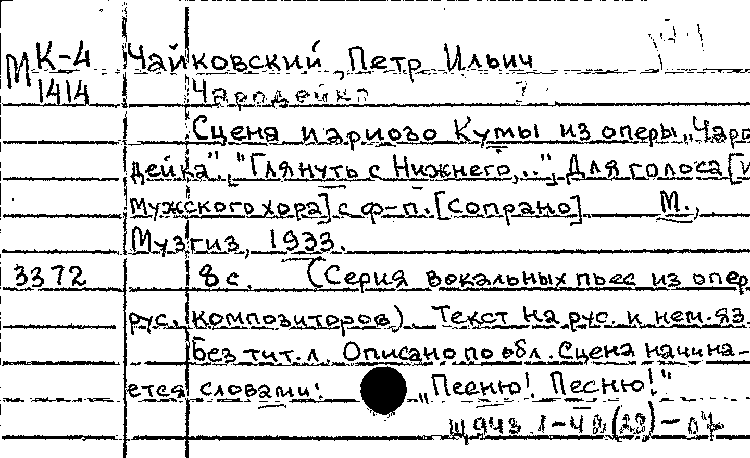 М К-4 Чайковский, Петр Ильич
1414 Чародейка
Сцена и ариозо Кумы из оперы „Чаро-
дейка". ["Глянуть с Нижнего,.."]. Для голоса [и
мужского хора] с ф-п. [Сопрано] М.,
Музгиз, 1933.
3372 8 с. (Серия вокальных пьес из опер
рус. композиторов). Текст на рус. и нем. яз.
Без тит. л. Описано по обл. Сцена начина-
ется словами: „Песню! Песню!"